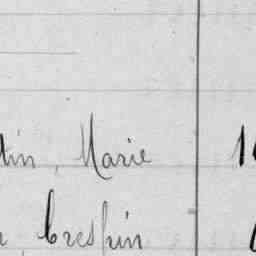 tin, Marie 1
Crespin